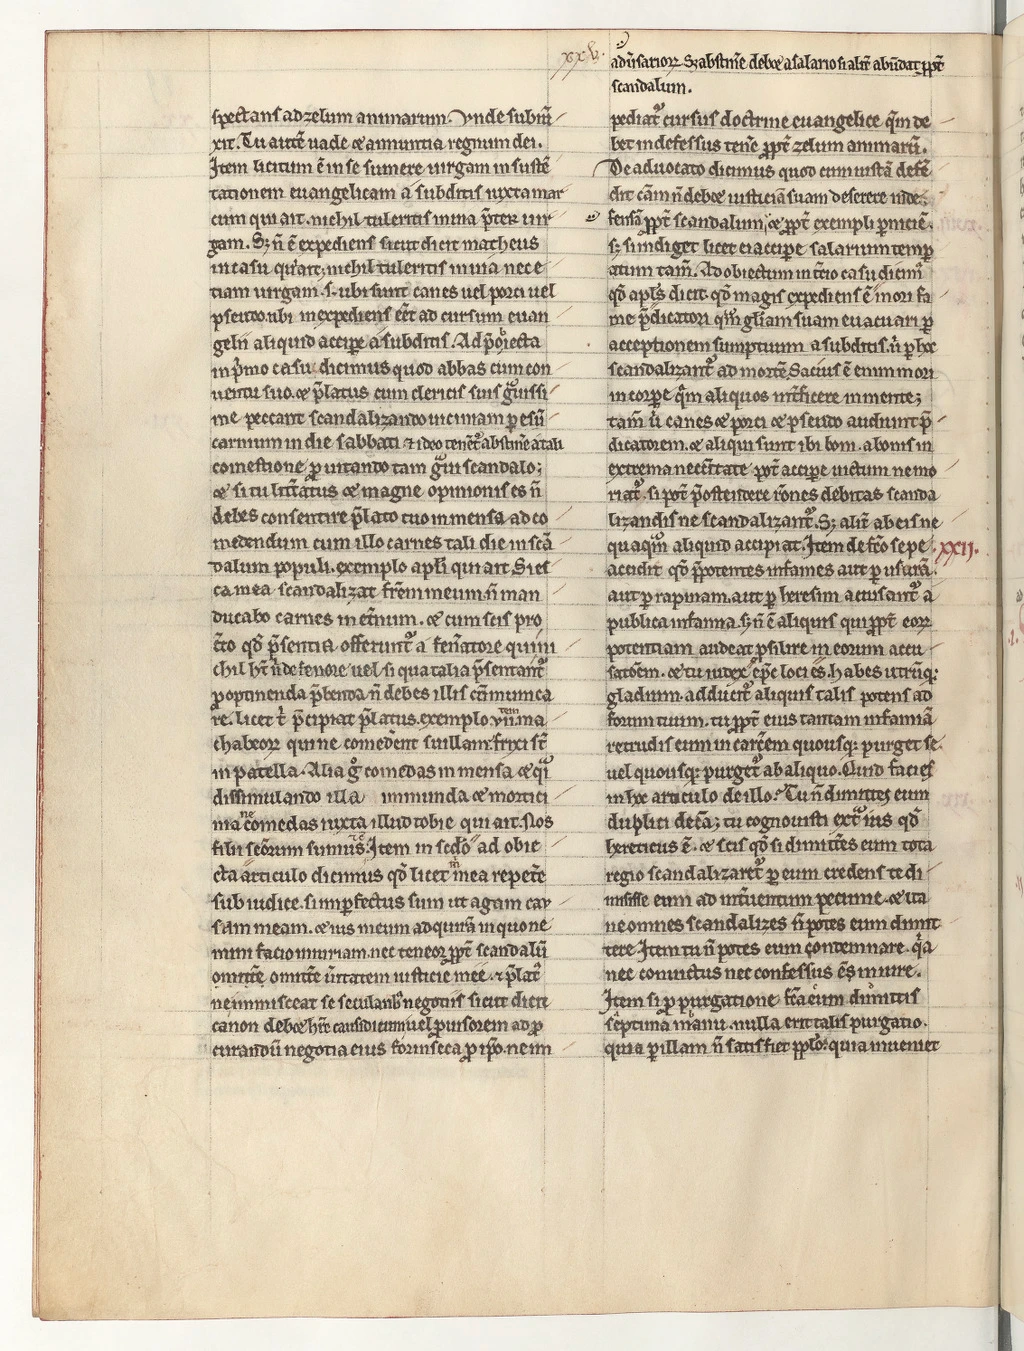 xxv.
adũsarioꝝ Sꝫ abstinẽ debꝫ a salario si alit̃ abũdat ꝓpt̃
scandalum.
spectans ad zelum animarum. Vnde subiũ
xit. Tu autẽ uade ⁊ annuntia regnum dei.
Item licitum ẽ in se sumere uirgam in sustẽ
tationem euangelicam a subditis iuxta mar
cum qui ait. nichil tuleritis in uia p̃ter uir
gam. Sꝫ ñ ẽ expediens sicut dicit matheus
in casu qͥ ait. nichil tuleritis in uia nec e
tiam uirgam. s. ubi sunt canes uel porci uel
pseudo. ubi inexpediens eẽt ad cursum euan
gelii aliquid accipe a subditis. Ad p̃obiecta
in p̃mo casu dicimus quod abbas cum con
uentu suo. ⁊ p̃latus cum clericis suis gͣuissi
me peccant scandalizando uiciniam ꝑ esũ
carnium in die sabbati ⁊ ideo tenet᷑ abstinẽ a tali
comestione ꝓ uitando tam gͣui scandalo;
⁊ si tu litt̃atus ⁊ magne opinionis es ñ
debes consentire p̃lato tuo in mensa ad co
medendum cum illo carnes tali die in scã
dalum populi. exemplo apli qui ait. Si es
ca mea scandalizat fr̃em meum. ñ man
ducabo carnes in et̃num. ⁊ cum scis pro
c̃to qđ p̃sentia offerunt᷑ a fen̄atore qui ni
chil ht̃ ñ de fenore uel si qua talia p̃sentant᷑
ꝓ optinenda p̃benda ñ debes illis cõmunica
re. licet t̃ p̃cipiat p̃latus. exemplo uñ. ma
chabeoꝝ qui ne comedẽnt suillam. frixi st̃
in patella. Alia gͦ comedas in mensa ⁊ qͣi
dissimulando illa immunda ⁊ mortici
nia ne comedas iuxta illud tobie qui ait. Nos
filii sc̃orum sumus. Item in scdo ad obie
cta articulo dicimus qđ licet m̃ mea repetẽ
sub iudice. si imꝑfectus sum ut agam cau
sam meam. ⁊ ius meum adquirã in quo ne
mini facio iniuriam. nec teneor ꝓpt̃ scandalũ
omittẽ omittẽ ũitatem iusticie mee. ⁊ p̃lat᷑
ne immisceat se secularibꝰ negotiis sicut dicit
canon debꝫ hr̃e causidicum uel ꝓuisorem ad ꝓ
curandũ negotia eius forinseca ꝓ ip̃o. ne im
pediat᷑ cursus doctrine euangelice qͣm de
bet indefessus tenẽ ꝓpt̃ zelum animarũ.
De aduocato dicimus quod cum iustã defẽ
dit cãm ñ debꝫ iusticiã suam deserere in de
fensã ꝓpt̃ scandalum, ⁊ ꝓpt̃ exempli ꝑniciẽ.
sꝫ si indiget licet ei accipe salarium temꝑ
atum tam̃. Ad obiectum in t̃cio casu dicim᷑
qđ apl̃s dicit. qđ magis expediens ẽ mori fa
me p̃dicatori qͣm gl̃iam suam euacuari ꝑ
acceptionem sumptuum a subditis. si ꝑ hoc
scandalizant᷑ ad mortẽ. Sacius ẽ enim mori
in corpe qͣm aliquos int̃ficere in mente;
tam̃ ũ canes ⁊ porci ⁊ pseudo audiunt p̃
dicatorem. ⁊ aliqui sunt ibi boni. a bonis in
extrema necc̃itate pot̃ accipe uictum ne mo
riat᷑. si pot̃ p̃ostendere rõnes debitas scanda
lizandis ne scandalizant᷑. Sꝫ alit̃ ab eis ne
quaqͣm aliquid accipiat. Item de fc̃o sepe
accidit qđ p̃potentes infames aut ꝑ usurã.
aut ꝑ rapinam. aut ꝑ heresim accusant᷑ a
publica infamia. sꝫ ñ ẽ aliquis qui ꝓpt̃ eoꝝ
potentiam audeat ꝓsilire in eorum accu
satõem. ⁊ tu iudex ep̃c loci es. habes utrũqꝫ
gladium. adducit᷑ aliquis talis potens ad
forum tuum. tu ꝓpt̃ eius tantam infamiã
retrudis eum in carc̃em quousqꝫ purget se.
uel quousqꝫ purget᷑ ab aliquo. Quid facies
in hoc articulo de illo? Tu ñ dimittes eum
dupplici de cã; tu cognouisti extͣ ius qđ
hereticus ẽ. ⁊ scis qđ si dimittes eum tota
regio scandalizaret᷑ ꝑ eum credens te di
misisse eum ad int̃uentum pecunie. ⁊ ita
ne omnes scandalizes ñ potes eum dimit
tere. Item tu ñ potes eum condemnare. qͣa
nec conuictus nec confessus ẽ in iure.
Item si ꝓ purgatione fc̃a eum dimittis
septima manu. nulla erit talis purgatio.
quia ꝑ illam ñ satisfiet ppl̃o. quia inueniet
XXII.